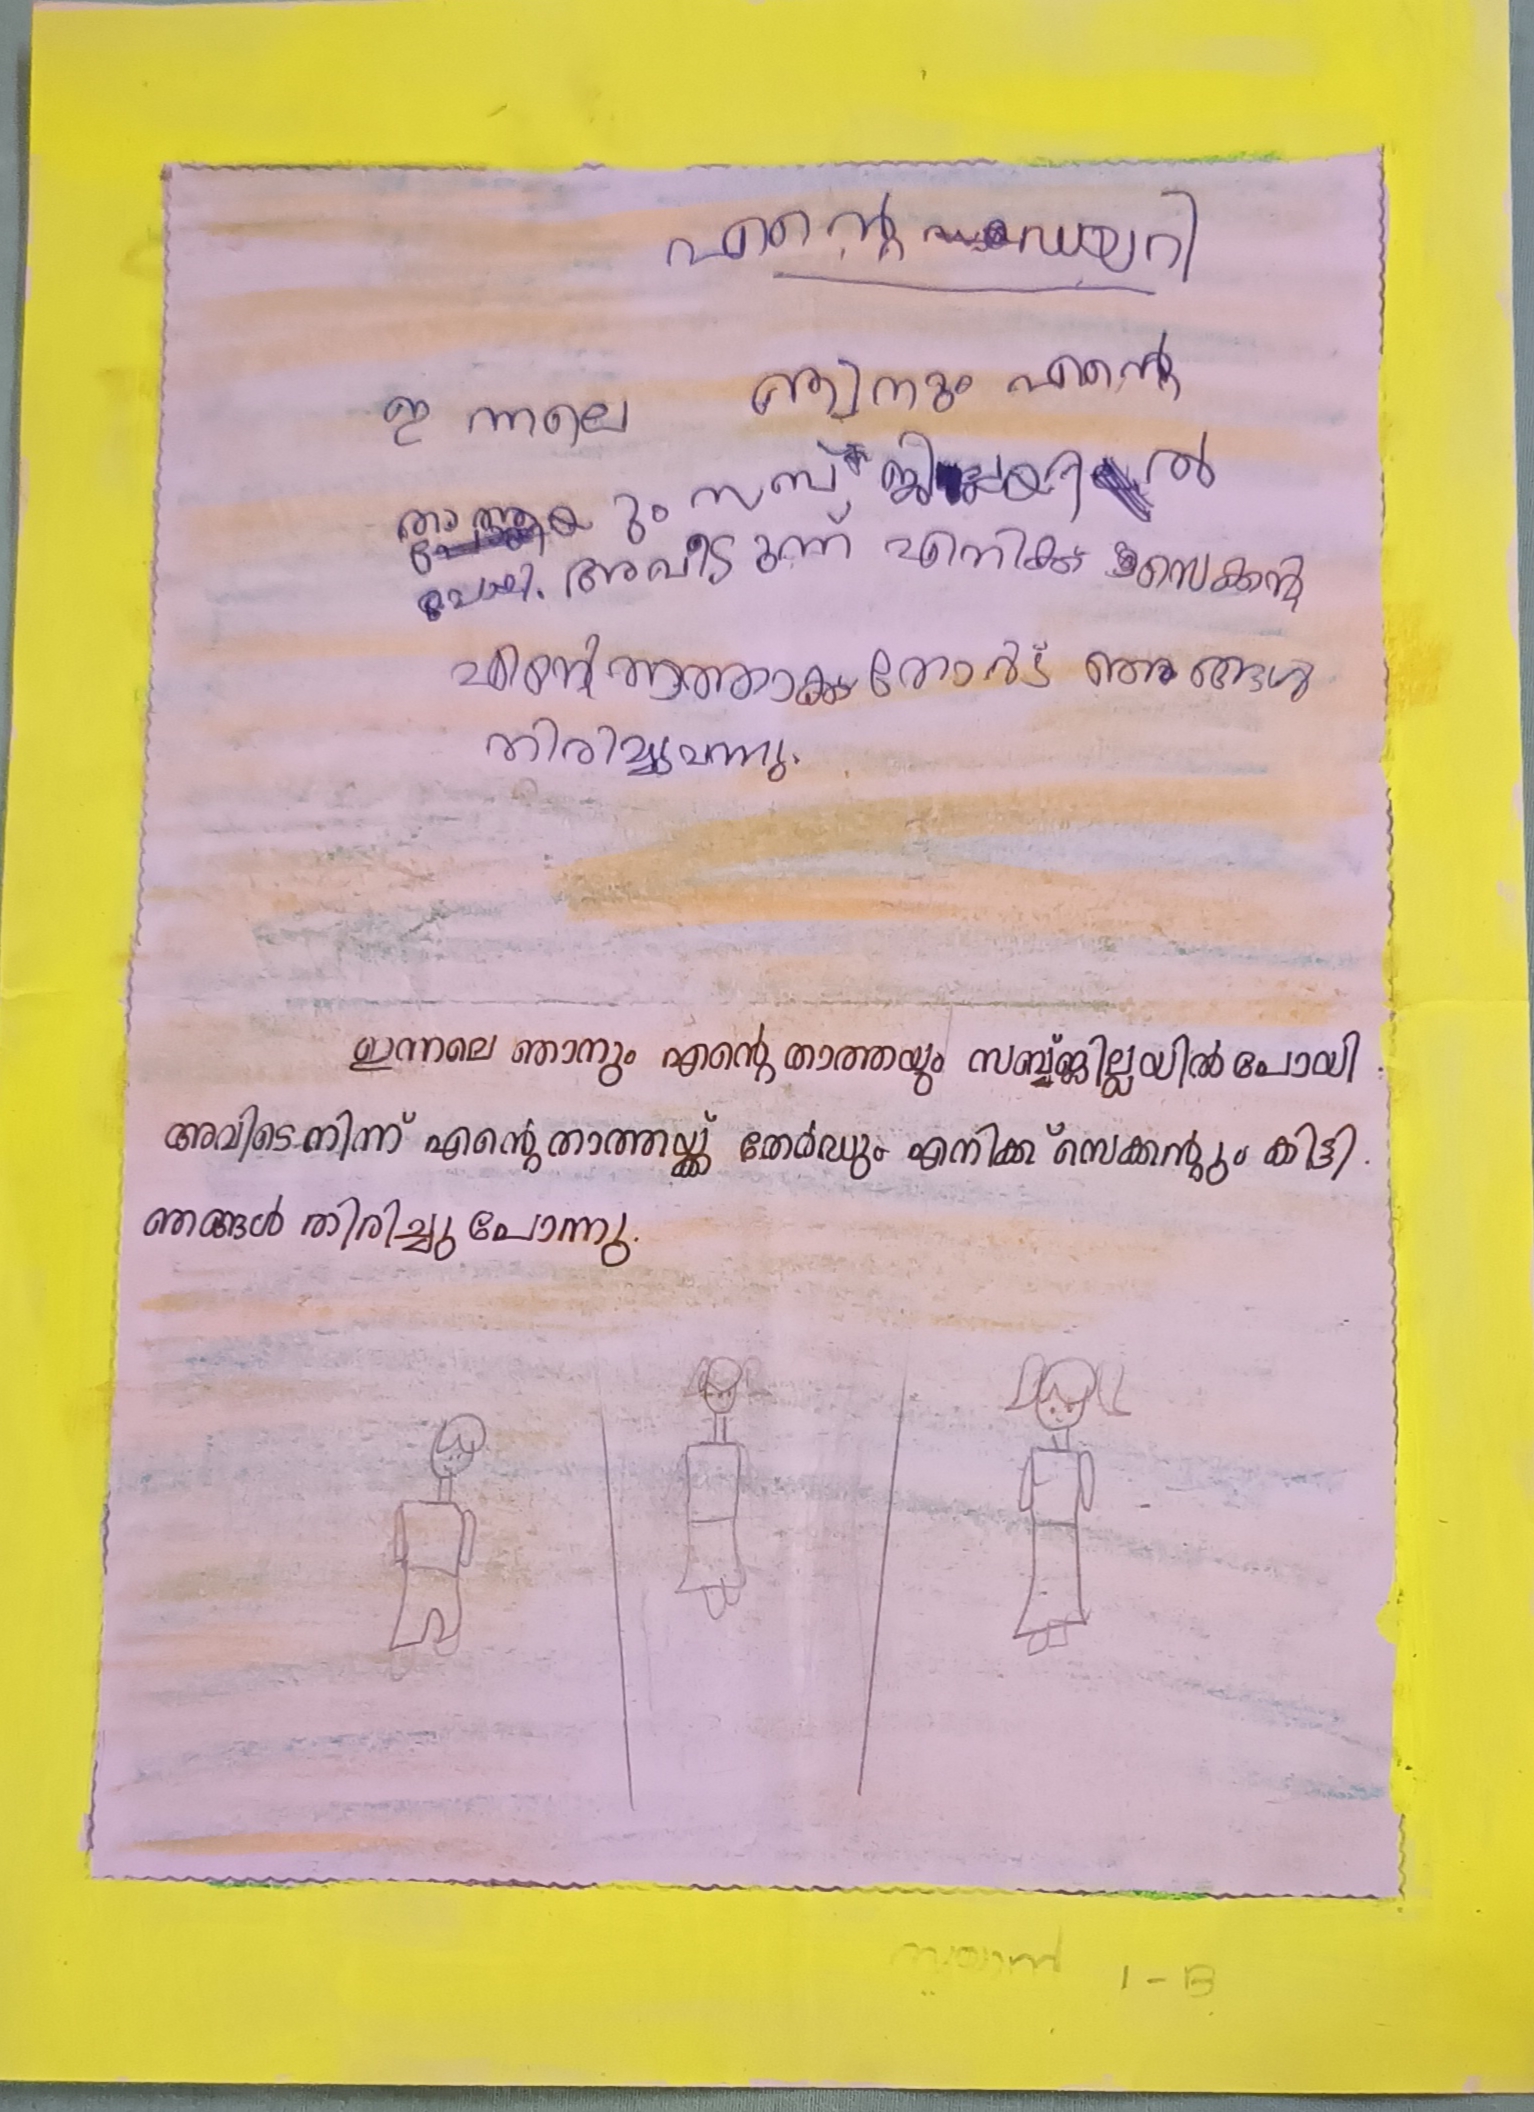 എന്റെ ഡയറി
ഇ ന്നലെ ഞാനും എന്റെ
താത്ത യും സബ് ജില്ലയിൽ
പോയി. അവിട ുന്ന് എനിക്ക സെക്കന്റ
എന്റെ താത്താക്ക തേർട് ഞങ്ങള
തിരിച്ചുവന്നു.
ഇന്നലെ ഞാനും എന്റെ താത്തയും സബ്ജില്ലയിൽ പോയി.
അവിടെ നിന്ന് എന്റെ താത്തയ്ക്ക് തേർഡും എനിക്ക് സെക്കന്റും കിട്ടി.
ഞങ്ങൾ തിരിച്ചു പോന്നു.
1-B